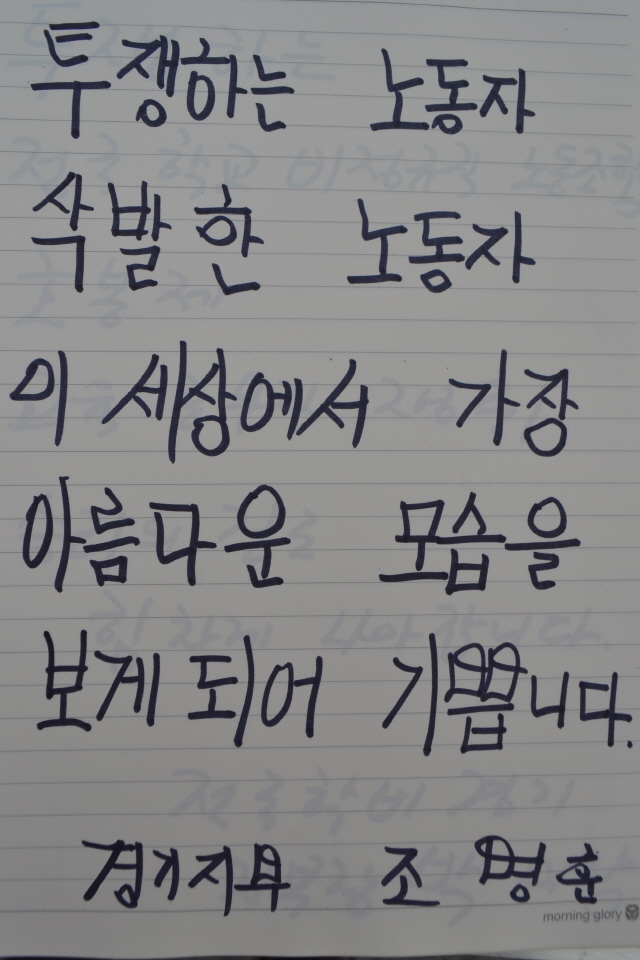 투쟁하는 노동자
삭발한 노동자
이 세상에서 가장
아름다운 모습을
보게 되어 기쁩니다.
경기지부 조 명훈
morning glory